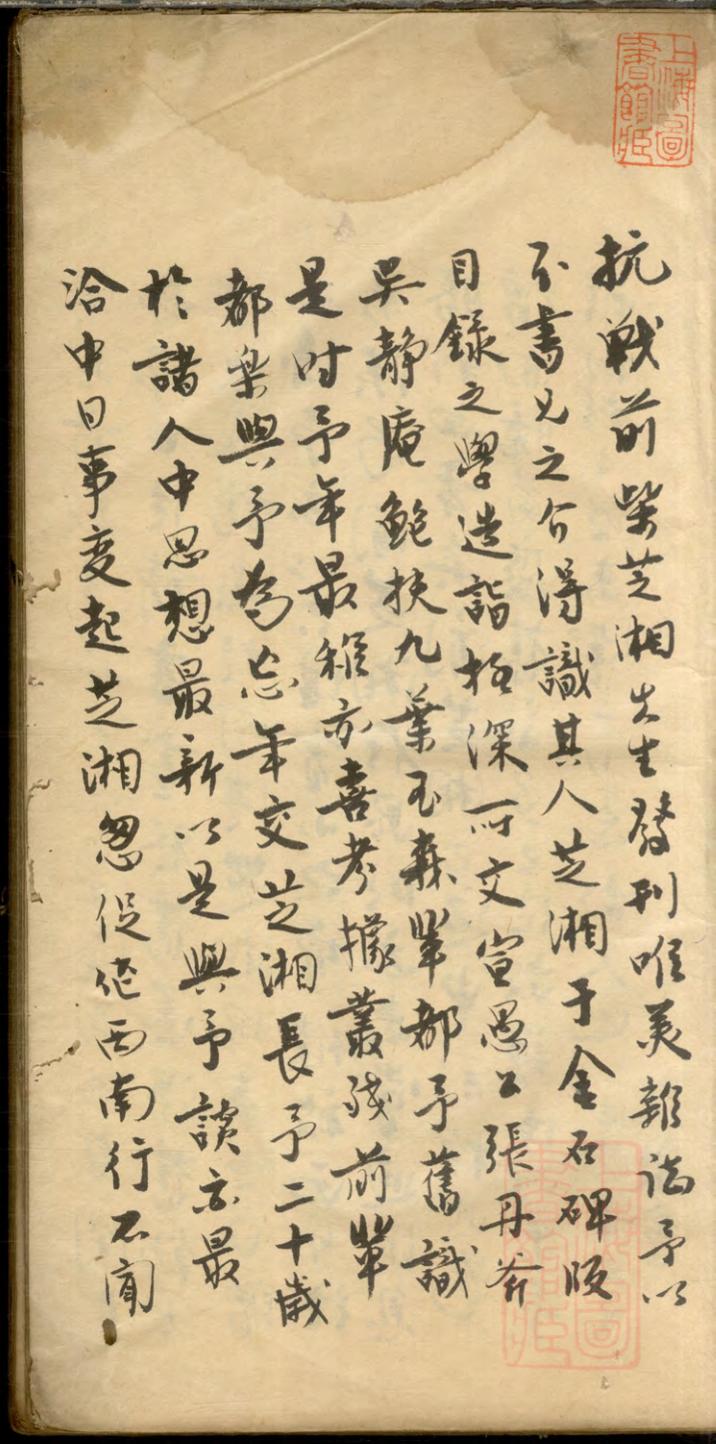 上海圖書館藏
抗戰前柴芝湘先生發刊唯美雜誌予以
不書見之介得識其人芝湘于金石碑版
目錄之學造詣極深所交宣愚公張丹斧
吳靜庵鮑扶九葉玉森輩都予舊識
是时予年最稚亦喜考據叢殘前輩
都樂與予為忘年交芝湘長予二十歲
於諸人中思想最新以是與予談亦最
洽中日事变起芝湘忽促作西南行不聞
上海圖書館藏